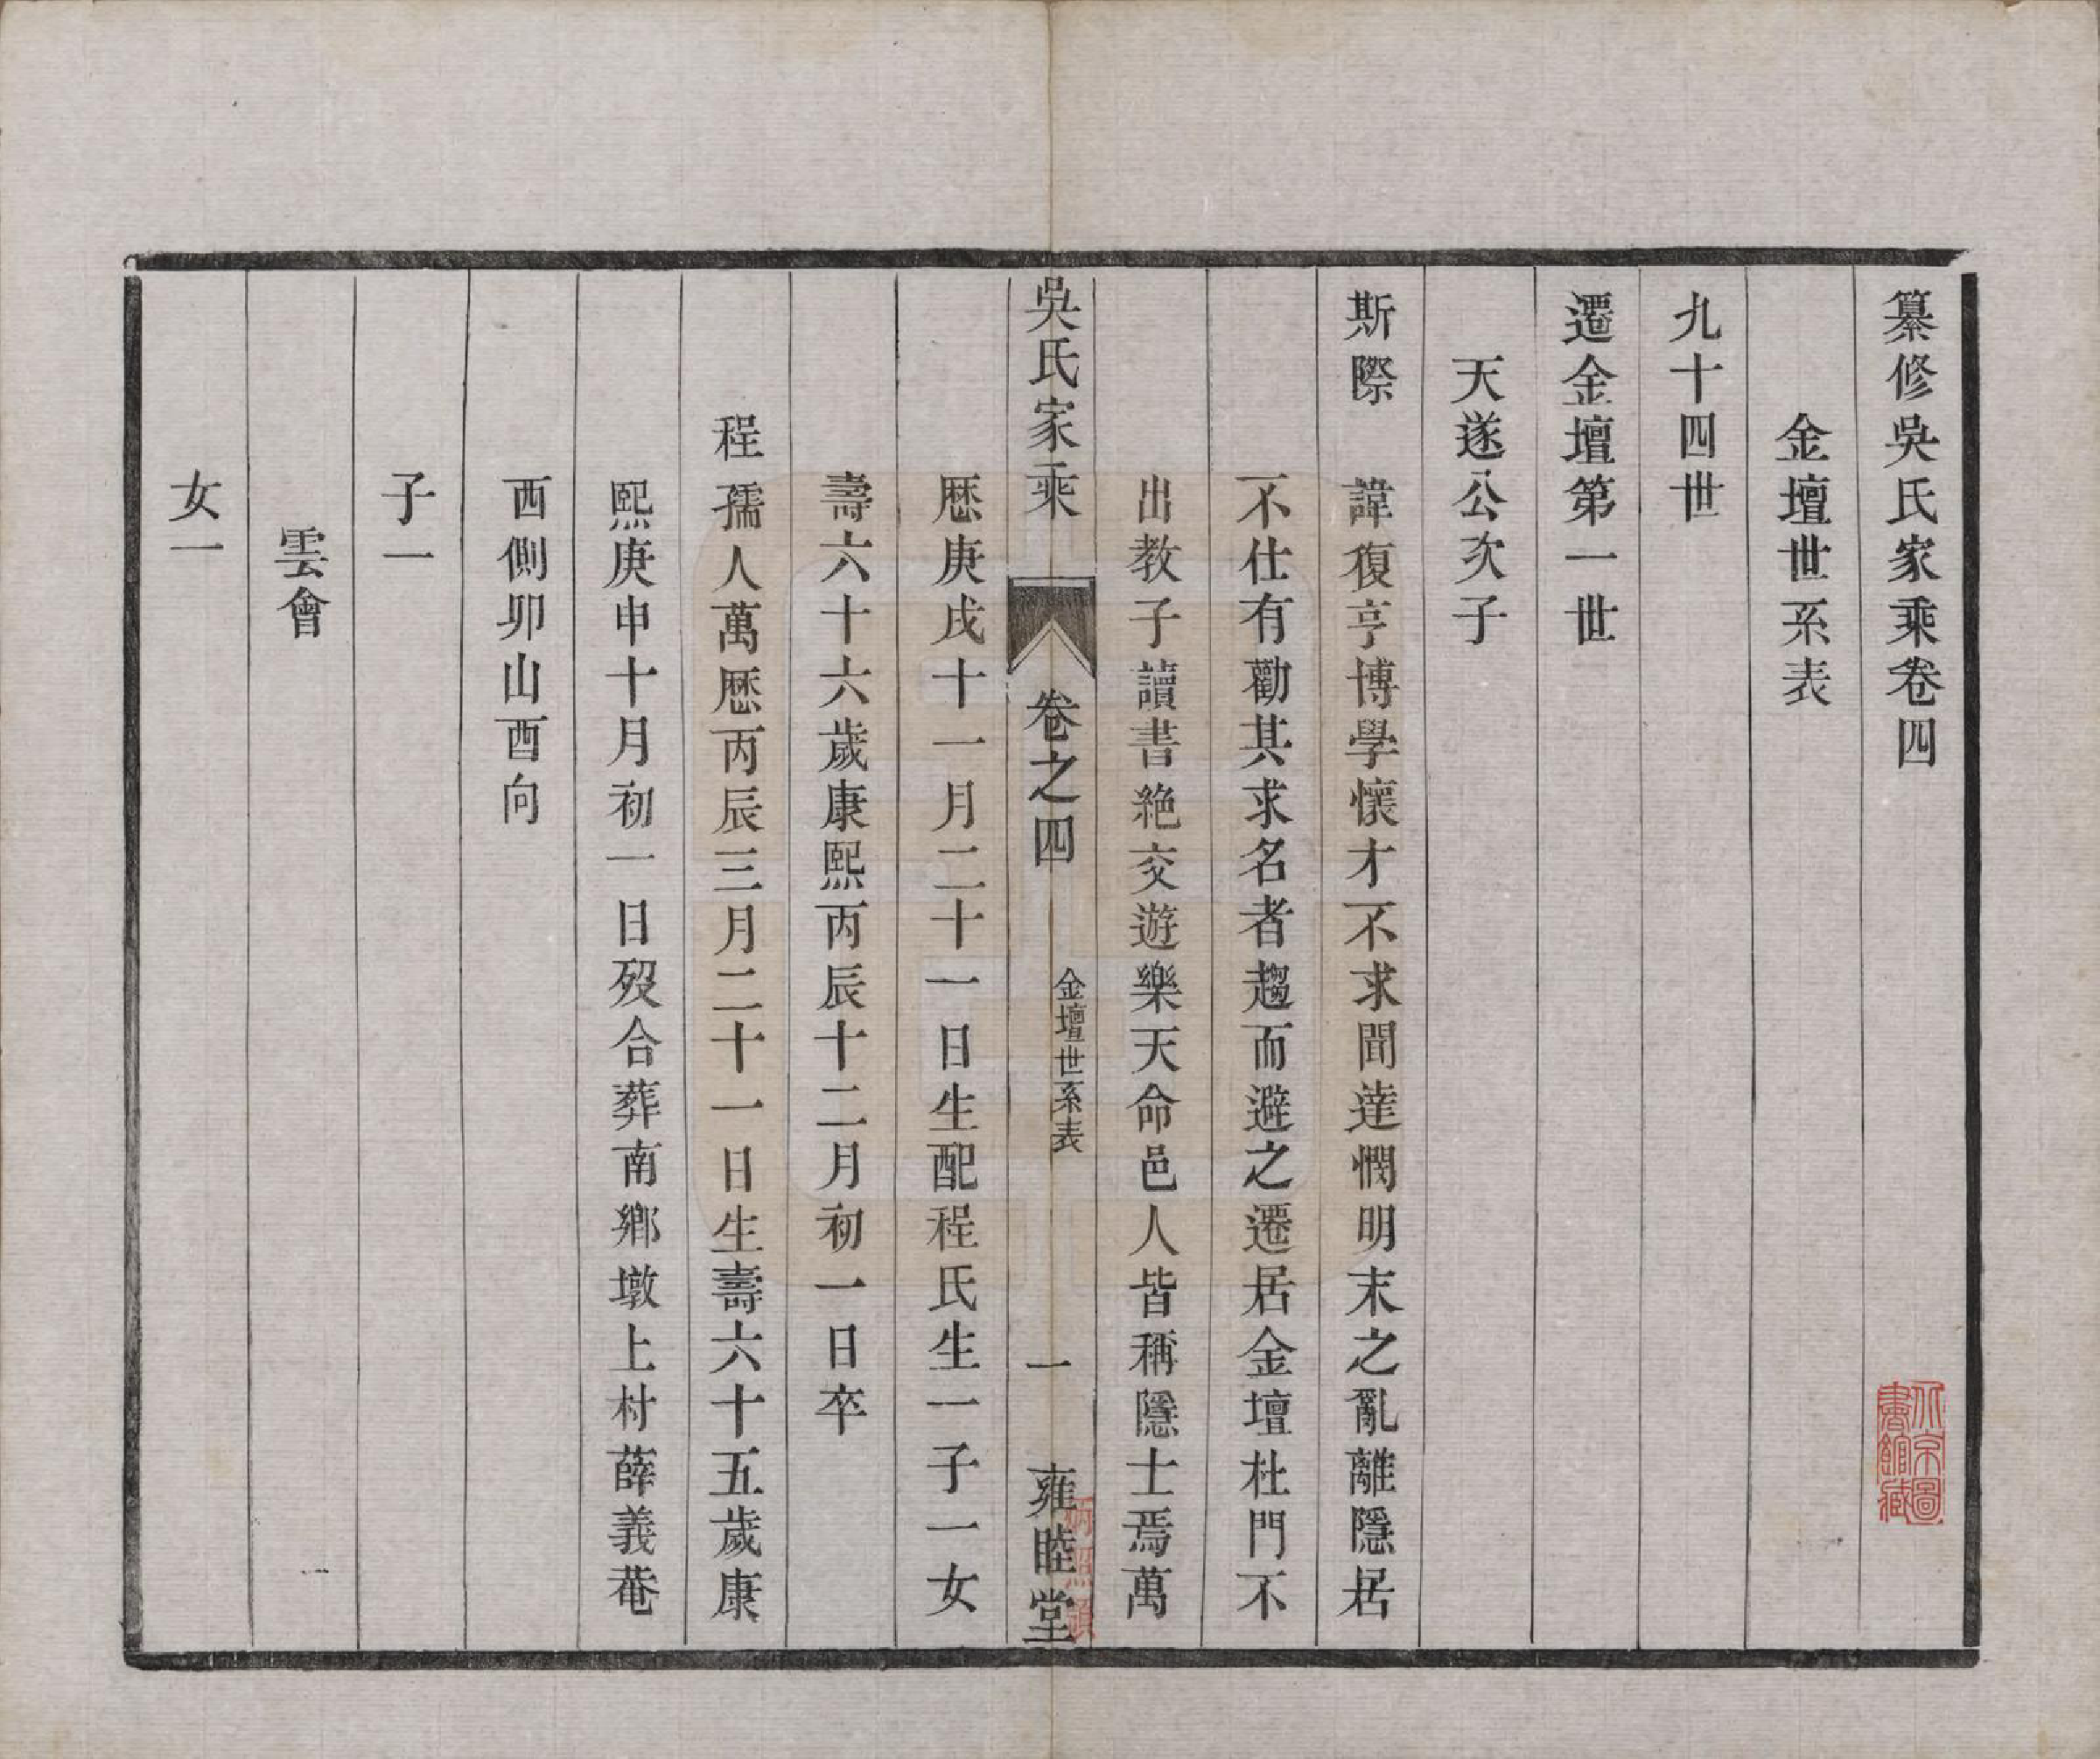 纂修吳氏家乘卷四
金壇世系表
九十四世
遷金壇第一世
天遂公次子
斯際　諱復亨博學懷才不求聞達憫明末之亂離隱居
不仕有勸其求名者趨而避之遷居金壇杜門不
出教子讀書絶交遊樂天命邑人皆稱隱士焉萬
吳氏家乘　卷之四　金壇世系表　一　雍睦堂
厯庚戌十一月二十一日生配程氏生一子一女
壽六十六歲康熙丙辰十二月初一日卒
程孺人萬厯丙辰三月二十一日生壽六十五歲康
熙庚申十月初一日歿合葬南鄉墩上村薛義菴
西側卯山酉向
子一
雲會
女一
北京圖書館藏